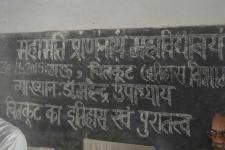 महामति प्राणनाथ महाविद्यालय
मऊ, चित्रकूट (इतिहास विभाग
व्याख्यान- डॉ. उपाध्याय
चित्रकूट का इतिहास एवं पुरातत्व